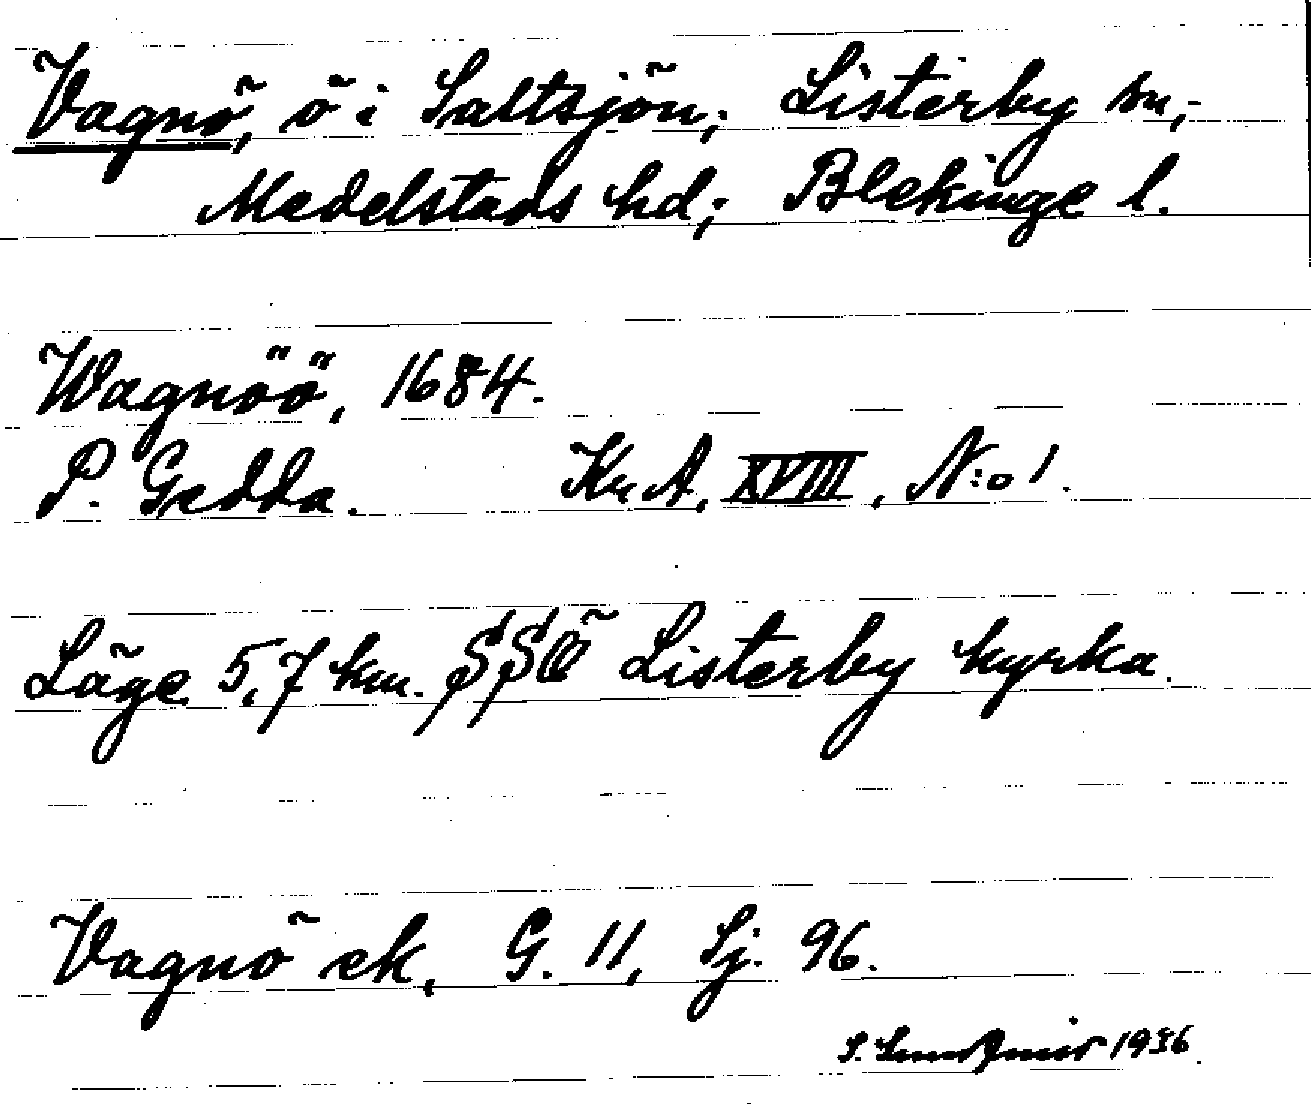 Vagnö, ö i Saltsjön; Listerby sn;
Medelstads hd; Blekinge l.
Wagnöö, 1684.
P. Gedda. Kr A, XVIII, N:o 1.
Läge 5,7 km. SSÖ Listerby kyrka.
Vagnö ek, G. 11, Sj. 96.
S. 1936